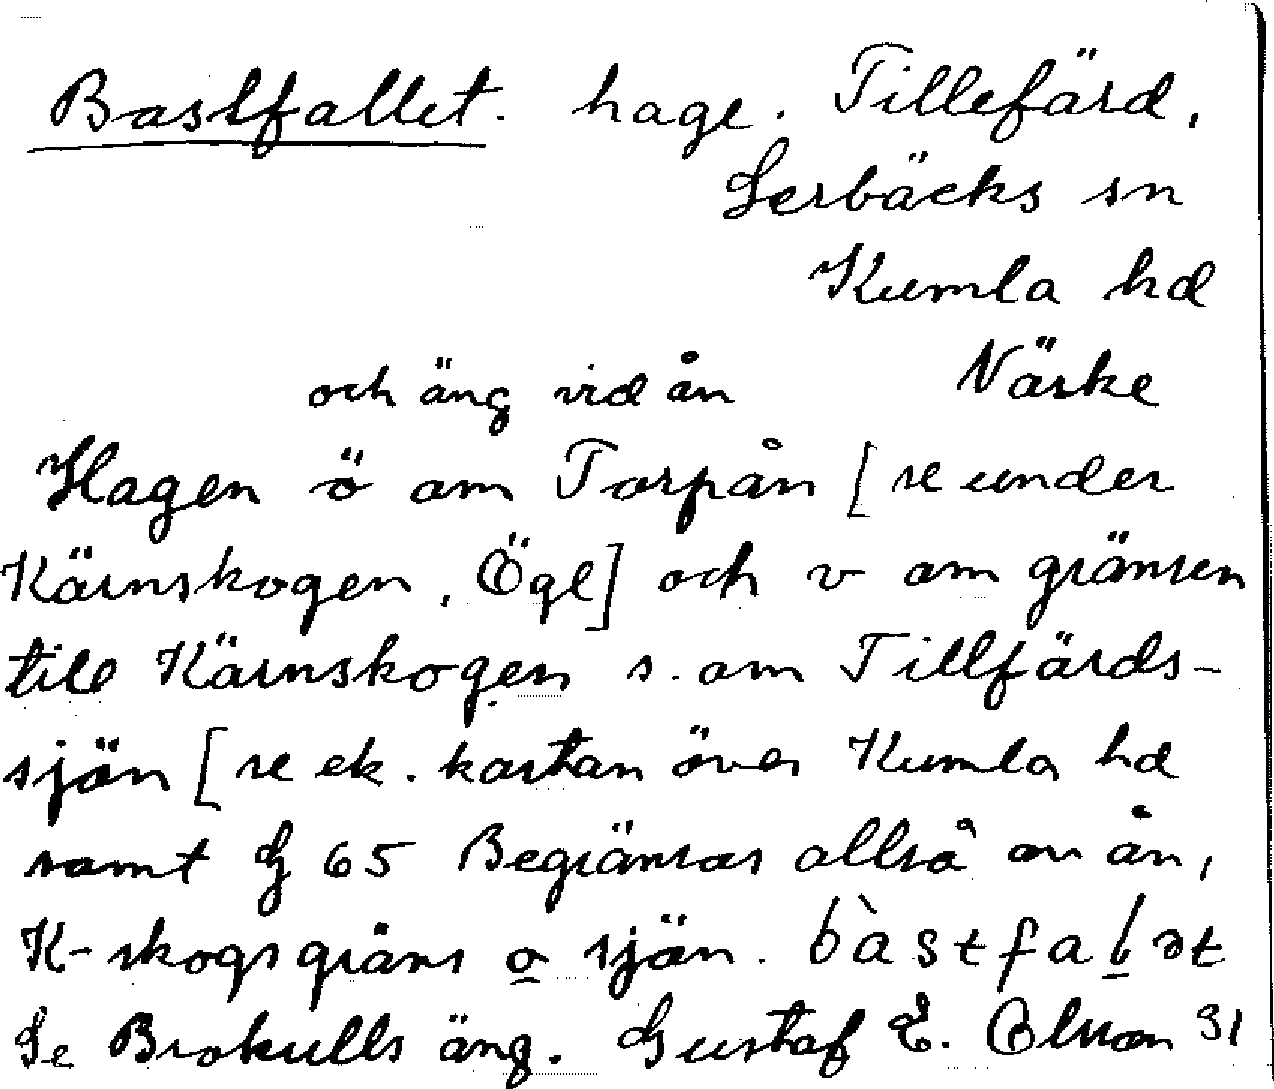 Bastfallet. hage. Tillefärd,
Lerbäcks sn
Kumla hd
Närke
och äng vid ån
Hagen ö om Torpån [se under
Kärnskogen, Ögl] och v om gränsen
till Kärnskogen s. om Tillfärds-
sjön [se ek. kartan över Kumla hd
samt G 65 Begränsas alltså av ån,
K-skogsgräns o sjön. bàstfalət
Se Brokulls äng. Gustaf E. Olsson 31